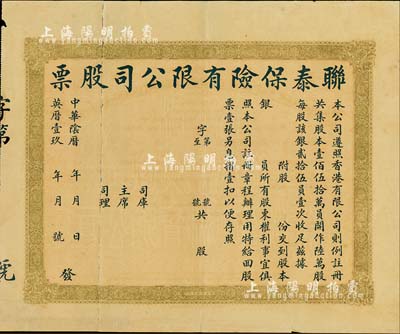 上海陽明拍賣
上海陽明拍賣
聯泰保險有限公司股票
本公司遵照香港有限公司則例註冊
共集股本壹佰伍拾萬員開作陸萬股
每股該銀貳拾伍員壹次收足茲據
附股 份交到股本
銀 員所有股東權利事宜俱
照本公司註冊章程辦理用特給回股
票壹張另息摺壹扣以便存照
字第 號
至 號共 股
司庫
主席
司理
中華陰曆 年 月 日
英曆壹玖 年 月 號 發
字第
上海陽明拍賣
上海陽明拍賣